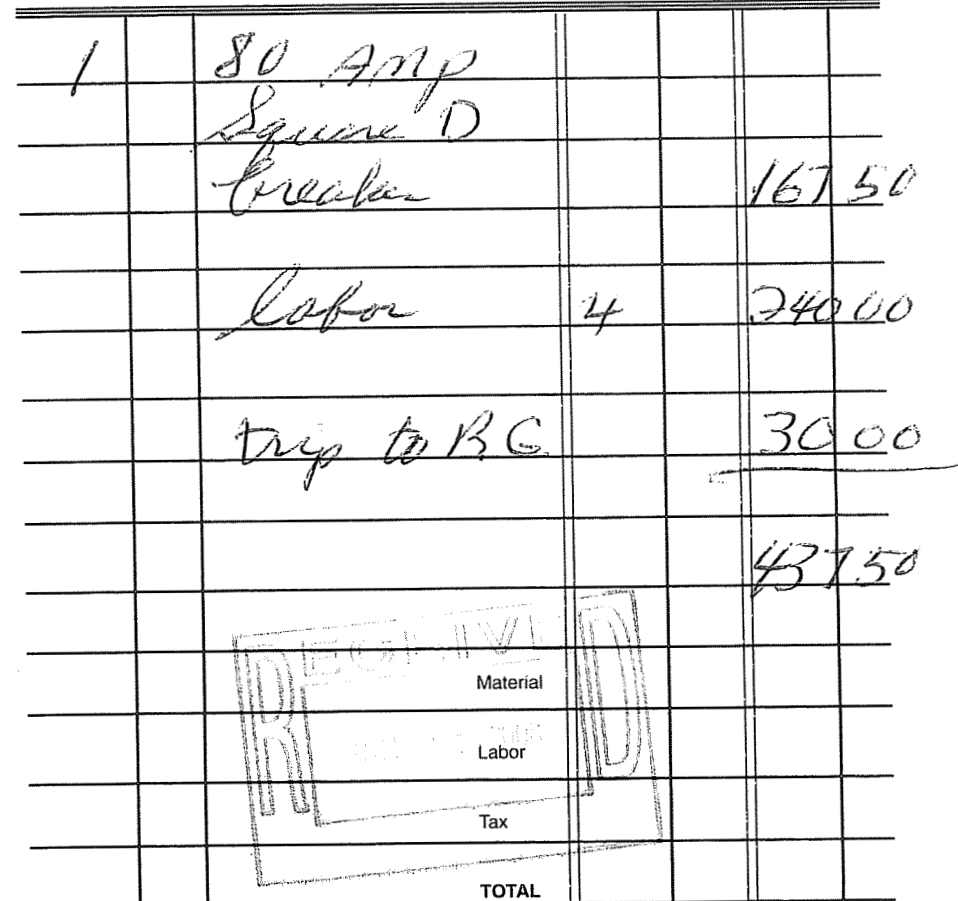 1 80 Amp
Square D
breaker 167 50
labor 4 240 00
trip to R.C. 30 00
437 50
RECEIVED
Material
Labor
Tax
TOTAL